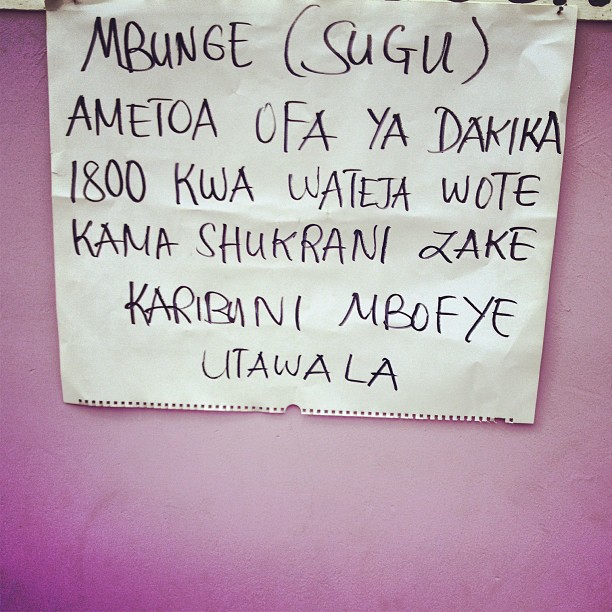 MBUNGE (SUGU)
AMETOA OFA YA DAKIKA
1800 KWA WATEJA WOTE
KAMA SHUKRANI ZAKE
KARIBUNI MBOFYE
UTAWALA